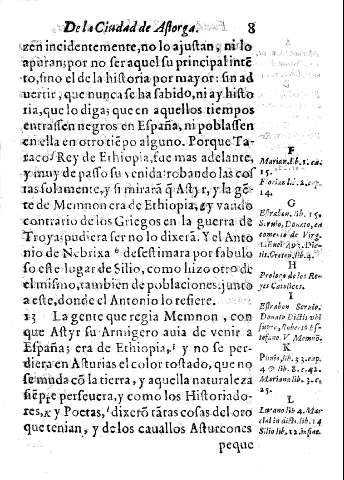 De la Ciudad de Astorga. 8
zen incidentemente, no lo ajustan, ni lo
apuran; por no ser aquel su principal intẽ
to, sino el de la historia por mayor: sin ad
uertir, que nunca se ha sabido, ni ay histo
ria, que lo diga; que en aquellos tiempos
entrassen negros en España, ni poblassen
en ella en otro tiẽpo alguno. Porque Ta-
raco F Rey de Ethiopia, fue mas adelante,
y muy de passo su venida robando las cos
tas solamente, y si mirarà q̃ Astyr, y la gẽ-
te de Memnon era de Ethiopia, G y vando
contrario de los Griegos en la guerra de
Troya; pudiera ser no lo dixera. Y el Anto
nio de Nebrixa H desestimara por fabulo
so este lugar de Silio, como hizo otro de
el mismo, tambien de poblaciones, junto
a este, donde el Antonio lo refiere.
13 La gente que regia Memnon, con
que Astyr su Armigero auia de venir a
España; era de Ethiopia, I y no se per-
diera en Asturias el color tostado, que no
se muda cõ la tierra, y aquella naturaleza
siẽp̃e perseuera, y como los Historiado-
res, K y Poetas, L dixerõ tãtas cosas del oro
que tenian, y de los cauallos Asturcones
peque
F
Marian. lib. 1. ca.
15.
Florian li. 2. cap.
14.
G
Estrabon, lib. 15.
Seruio, Donato, en
comento de Virg.
H
Prologo de los Re-
yes Catolicos.
I
Estrabon Seruio.
Donato Dictis vbi
supra,
K
Plinio, lib. 33. cap.
4. & lib. 8. c. 42.
Mariana lib. 3. c.
25.
L
Lucano lib. 4. Mar
cial in distis. lib. 14
Silio lib. 12. in fine.